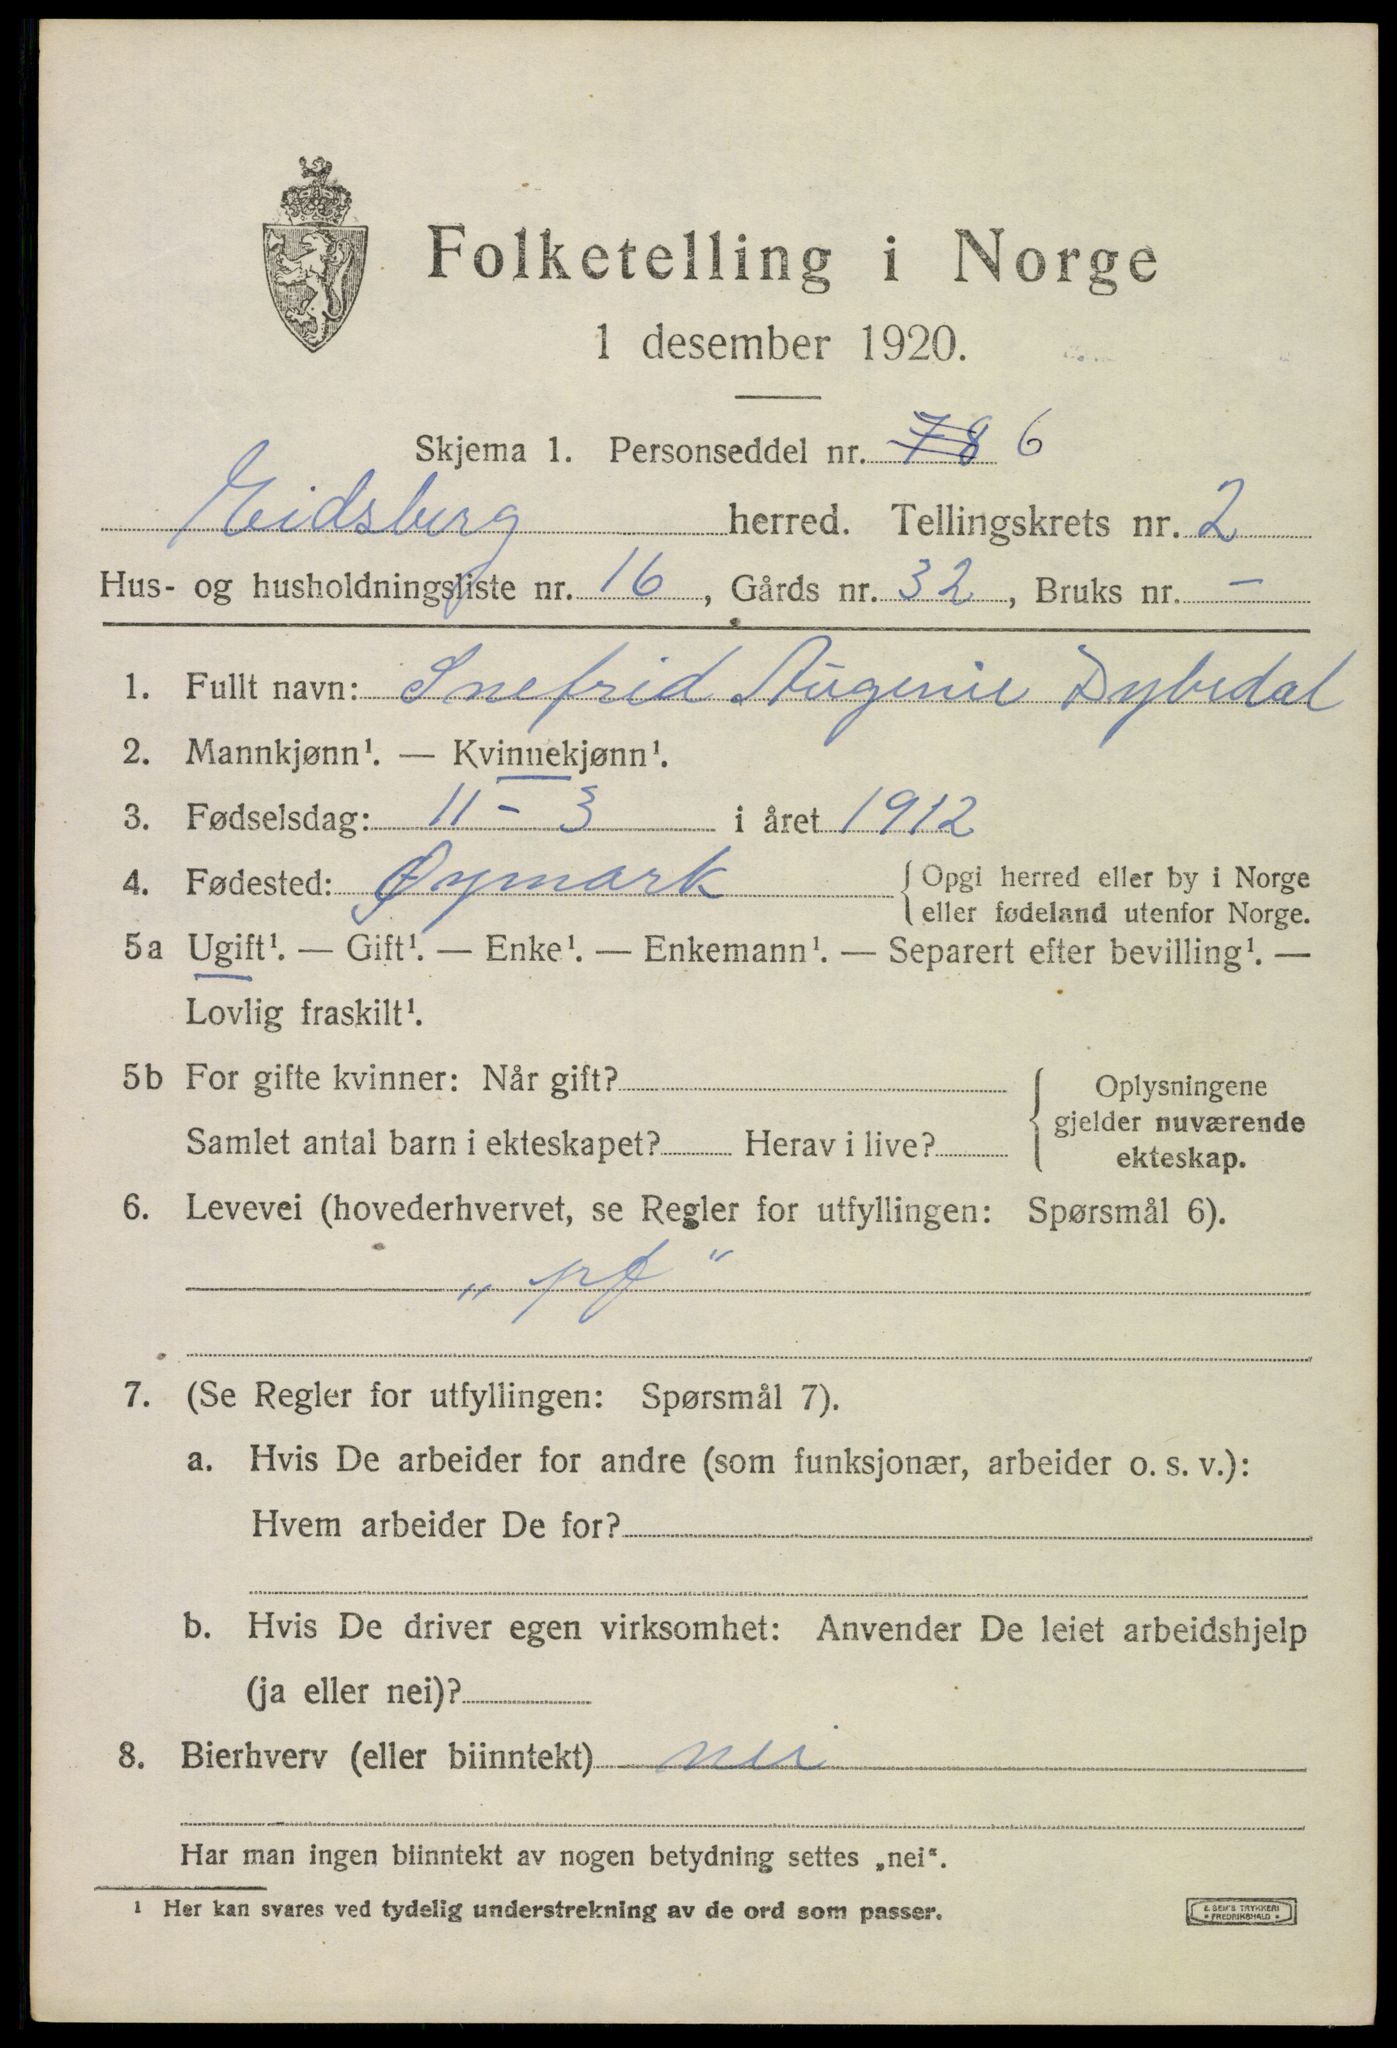 Folketelling i Norge
1 desember 1920.
Skjema 1. Personseddel nr. 78 6
Eidsberg herred. Tellingskrets nr. 2
Hus- og husholdningsliste nr. 16, Gårds nr. 32, Bruks nr. -
1. Fullt navn: Snefrid Augenie Dybedal
2. Mannkjønn¹. — Kvinnekjønn¹.
3. Fødselsdag: 11 - 3 i året 1912
4. Fødested: Øymark { Opgi herred eller by i Norge
eller fødeland utenfor Norge.
5a Ugift¹. — Gift¹. — Enke¹. — Enkemann¹. — Separert efter bevilling¹. —
Lovlig fraskilt¹.
5b For gifte kvinner: Når gift?
Samlet antal barn i ekteskapet? Herav i live?
Oplysningene
gjelder nuværende
ekteskap.
6. Levevei (hovederhvervet, se Regler for utfyllingen: Spørsmål 6).
„ pf "
7. (Se Regler for utfyllingen: Spørsmål 7).
a. Hvis De arbeider for andre (som funksjonær, arbeider o. s. v.):
Hvem arbeider De for?
b. Hvis De driver egen virksomhet: Anvender De leiet arbeidshjelp
(ja eller nei)?
8. Bierhverv (eller biinntekt) nei
Har man ingen biinntekt av nogen betydning settes „nei".
¹ Her kan svares ved tydelig understrekning av de ord som passer.
E. SEM'S TRYKKERI
FREDRIKSHALD